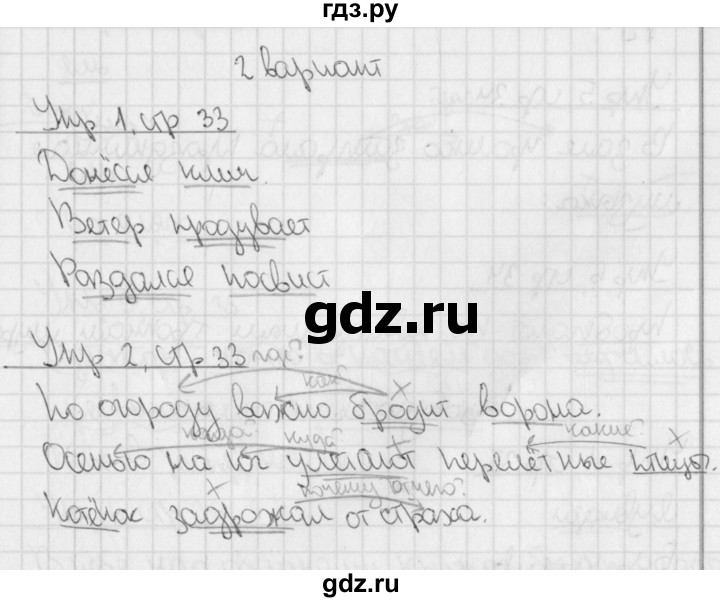 гдз.ру
2 вариант
Упр 1, стр 33
Донёсся клич.
Ветер продувает
Раздался посвист
gdz.ru
Упр 2, стр 33 где?
как?
По огороду важно бродит ворона.
когда? куда? какие?
Осенью на юг улетают перелётные птицы.
почему? отчего?
Котёнок задрожал от страха.
gdz.ru